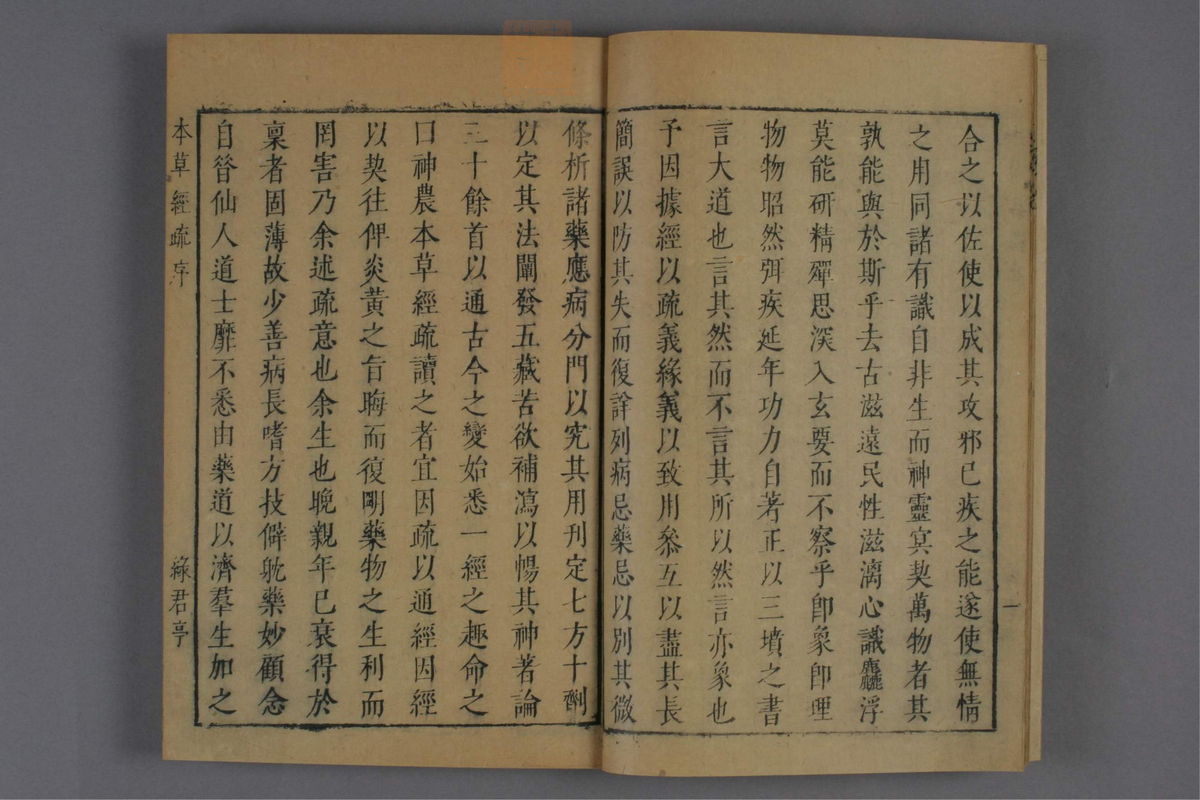 合之以佐使以成其攻邪已疾之能遂使無情
之用同諸有識自非生而神靈冥契萬物者其
孰能與於斯乎去古滋遠民性滋漓心識麤浮
莫能研精殫思深入玄要而不察乎卽象卽理
物物昭然弭疾延年功力自著正以三墳之書
言大道也言其然而不言其所以然言亦象也
予因據經以疏義緣義以致用叅互以盡其長
簡誤以防其失而復詳列病忌藥忌以別其微
條析諸藥應病分門以究其用刊定七方十劑
以定其法闡發五藏苦欲補瀉以暢其神著論
三十餘首以通古今之變始悉一經之趣命之
曰神農本草經疏讀之者宜因疏以通經因經
以契往俾炎黃之旨晦而復明藥物之生利而
罔害乃余述疏意也余生也晚親年已衰得於
稟者固薄故少善病長嗜方技僻躭藥妙顧念
自昝仙人道士靡不悉由藥道以濟羣生加之
本草經疏序
綠君亭
一